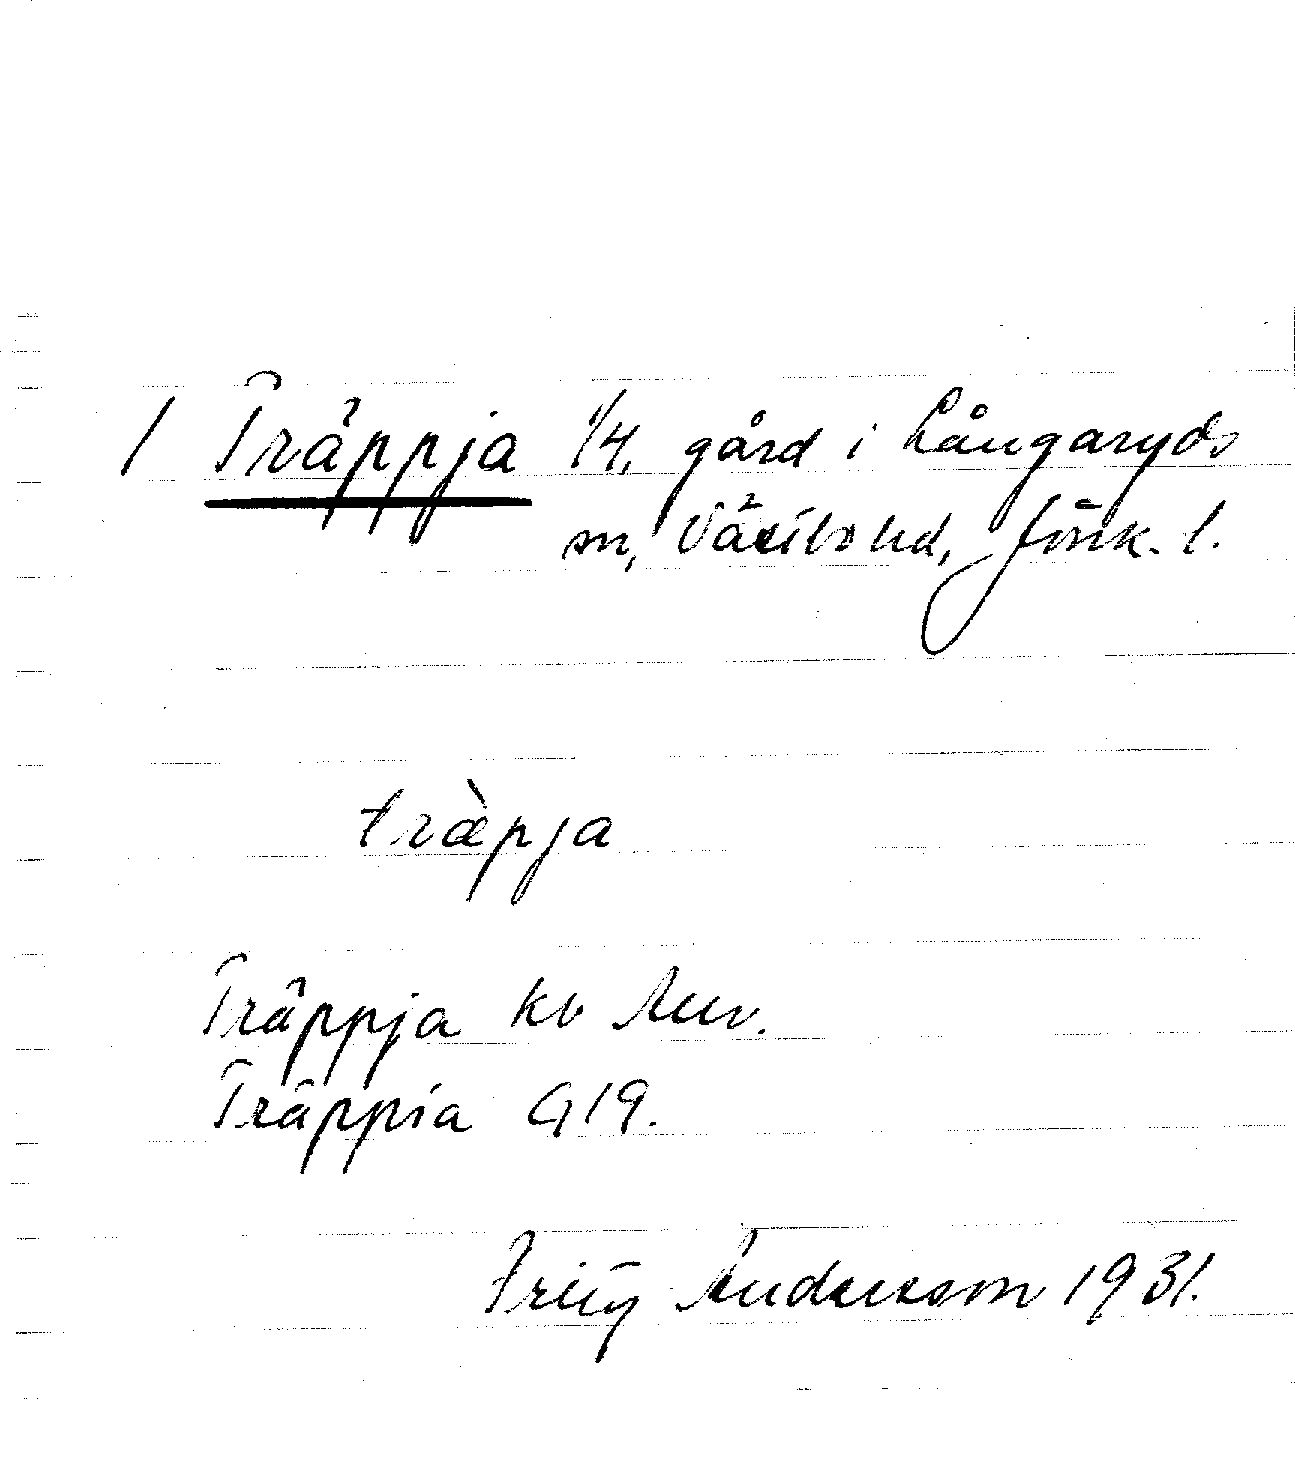 / Träppja 1/4 gård i Långaryds
sn, Västbo hd, Jönk. l.
træ̀pja
Träppja kb Auv.
Träppia G19.
Andersson 1931.